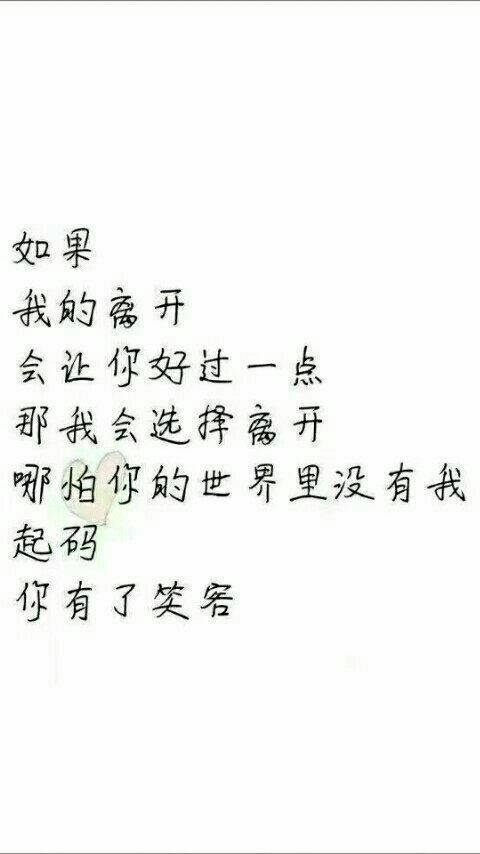 如果
我的离开
会让你好过一点
那我会选择离开
哪怕你的世界里没有我
起码
你有了笑容